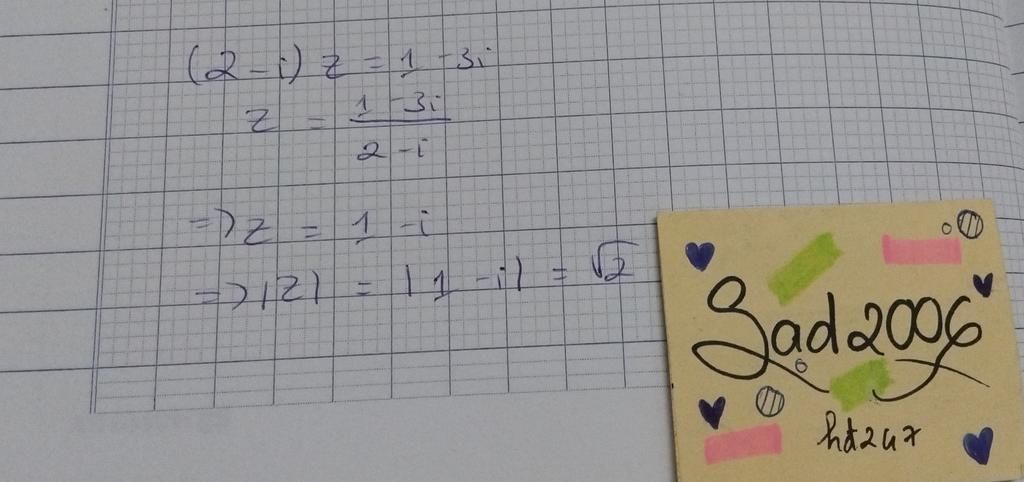 (2-i) z = 1 -3i
z = \frac{1 -3i}{2 -i}
=> z = 1 -i
=> |z| = |1 -i| = √2
Sad2006
hd2u7